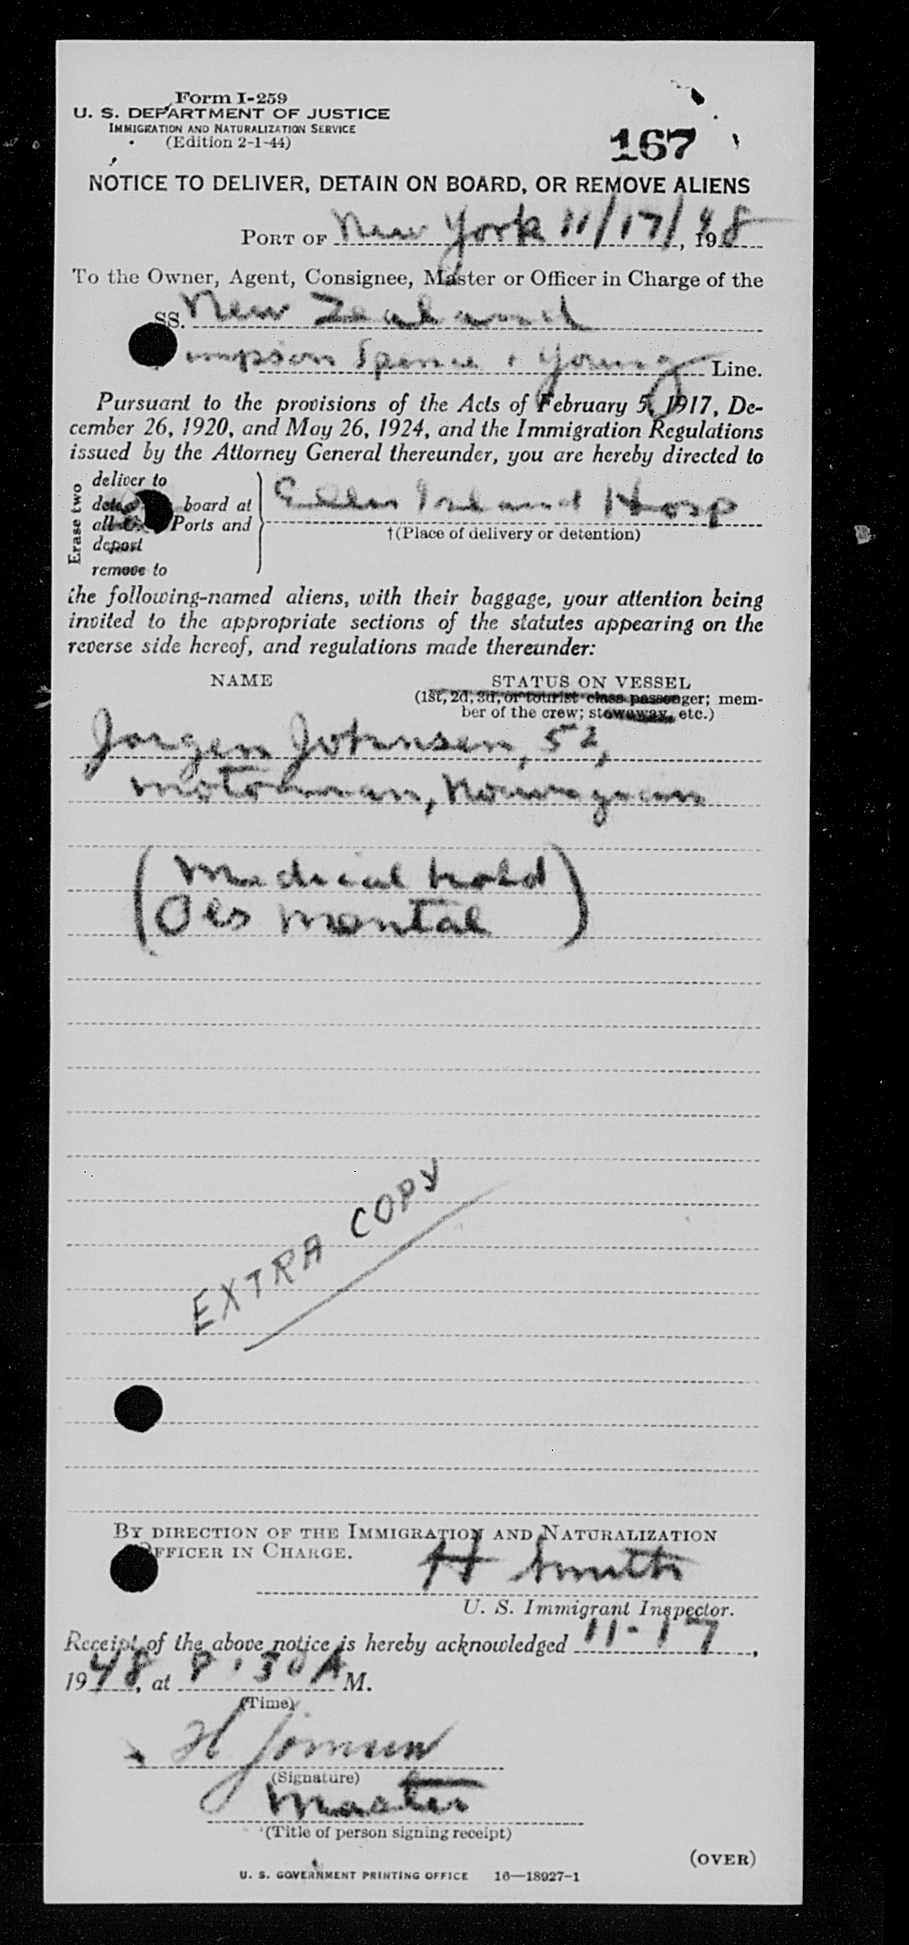 Form I-259
U. S. DEPARTMENT OF JUSTICE
IMMIGRATION AND NATURALIZATION SERVICE
(Edition 2-1-44)
167
NOTICE TO DELIVER, DETAIN ON BOARD, OR REMOVE ALIENS
PORT OF New York 11/17/, 1948
To the Owner, Agent, Consignee, Master or Officer in Charge of the
SS. New Zealand
impson Spence + Young Line.
Pursuant to the provisions of the Acts of February 5, 1917, De-
cember 26, 1920, and May 26, 1924, and the Immigration Regulations
issued by the Attorney General thereunder, you are hereby directed to
Erase two
deliver to
board at
all Ports and
deport
remove to
Ellis Island Hosp
†(Place of delivery or detention)
the following-named aliens, with their baggage, your attention being
invited to the appropriate sections of the statutes appearing on the
reverse side hereof, and regulations made thereunder:
NAME STATUS ON VESSEL
(1st, 2d, 3d, or tourist class passenger; mem-
ber of the crew; stowaway, etc.)
Jorgen Johnsen, 52,
motorman, Norwegian
(Medical hold)
(Obs mental)
EXTRA COPY
BY DIRECTION OF THE IMMIGRATION AND NATURALIZATION
OFFICER IN CHARGE.
H Smith
U. S. Immigrant Inspector.
Receipt of the above notice is hereby acknowledged 11-17,
1948, at 8:30 A M.
(Time)
H
(Signature)
Master
(Title of person signing receipt)
(OVER)
U. S. GOVERNMENT PRINTING OFFICE 16—18927-1